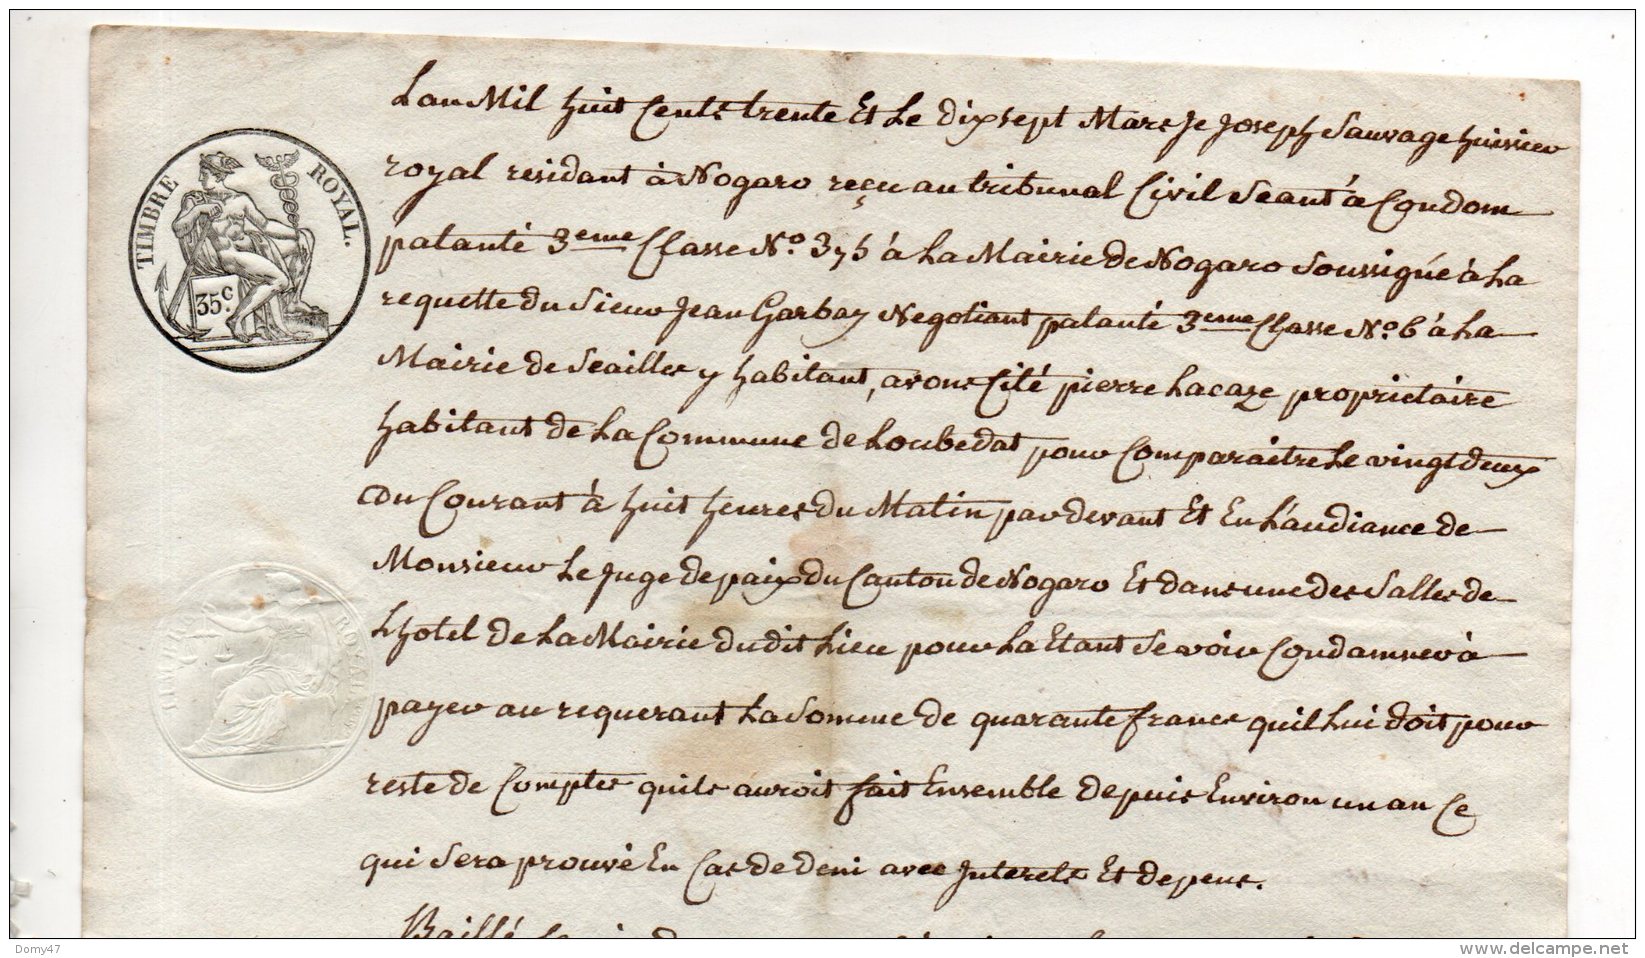 TIMBRE ROYAL.
35c.
Lan Mil huit Cents trente Et Le Dix sept Mars Je Joseph Sauvage huissier
royal residant à Nogaro reçu au tribunal Civil Seant à Condom
patanté 3eme Classe No. 375 à La Mairie de Nogaro Soussigné à La
requette du Sieur Jean Garbay Negotiant patanté 3eme Classe No. 6 à La
Mairie de Seailles y habitant, avons Cité pierre Lacaze proprietaire
habitant de La Commune de Loubedat pour Comparaitre Le vingt deux
du Courant à huit heures du Matin par devant Et En L'audiance de
Monsieur Le Juge de paix du Canton de Nogaro Et dans une des Salles de
L'hotel de La Mairie du dit Lieu pour La Etant Se voir Condamner à
payer au requerant La Somme de quarante francs quil Lui doit pour
reste de Comptes quils auroit fait Ensemble depuis Environ un an Ce
qui Sera prouvé En Cas de deni avec Interets Et depens.
Baillé
TIMBRE ROYAL
Domy47
www.delcampe.net